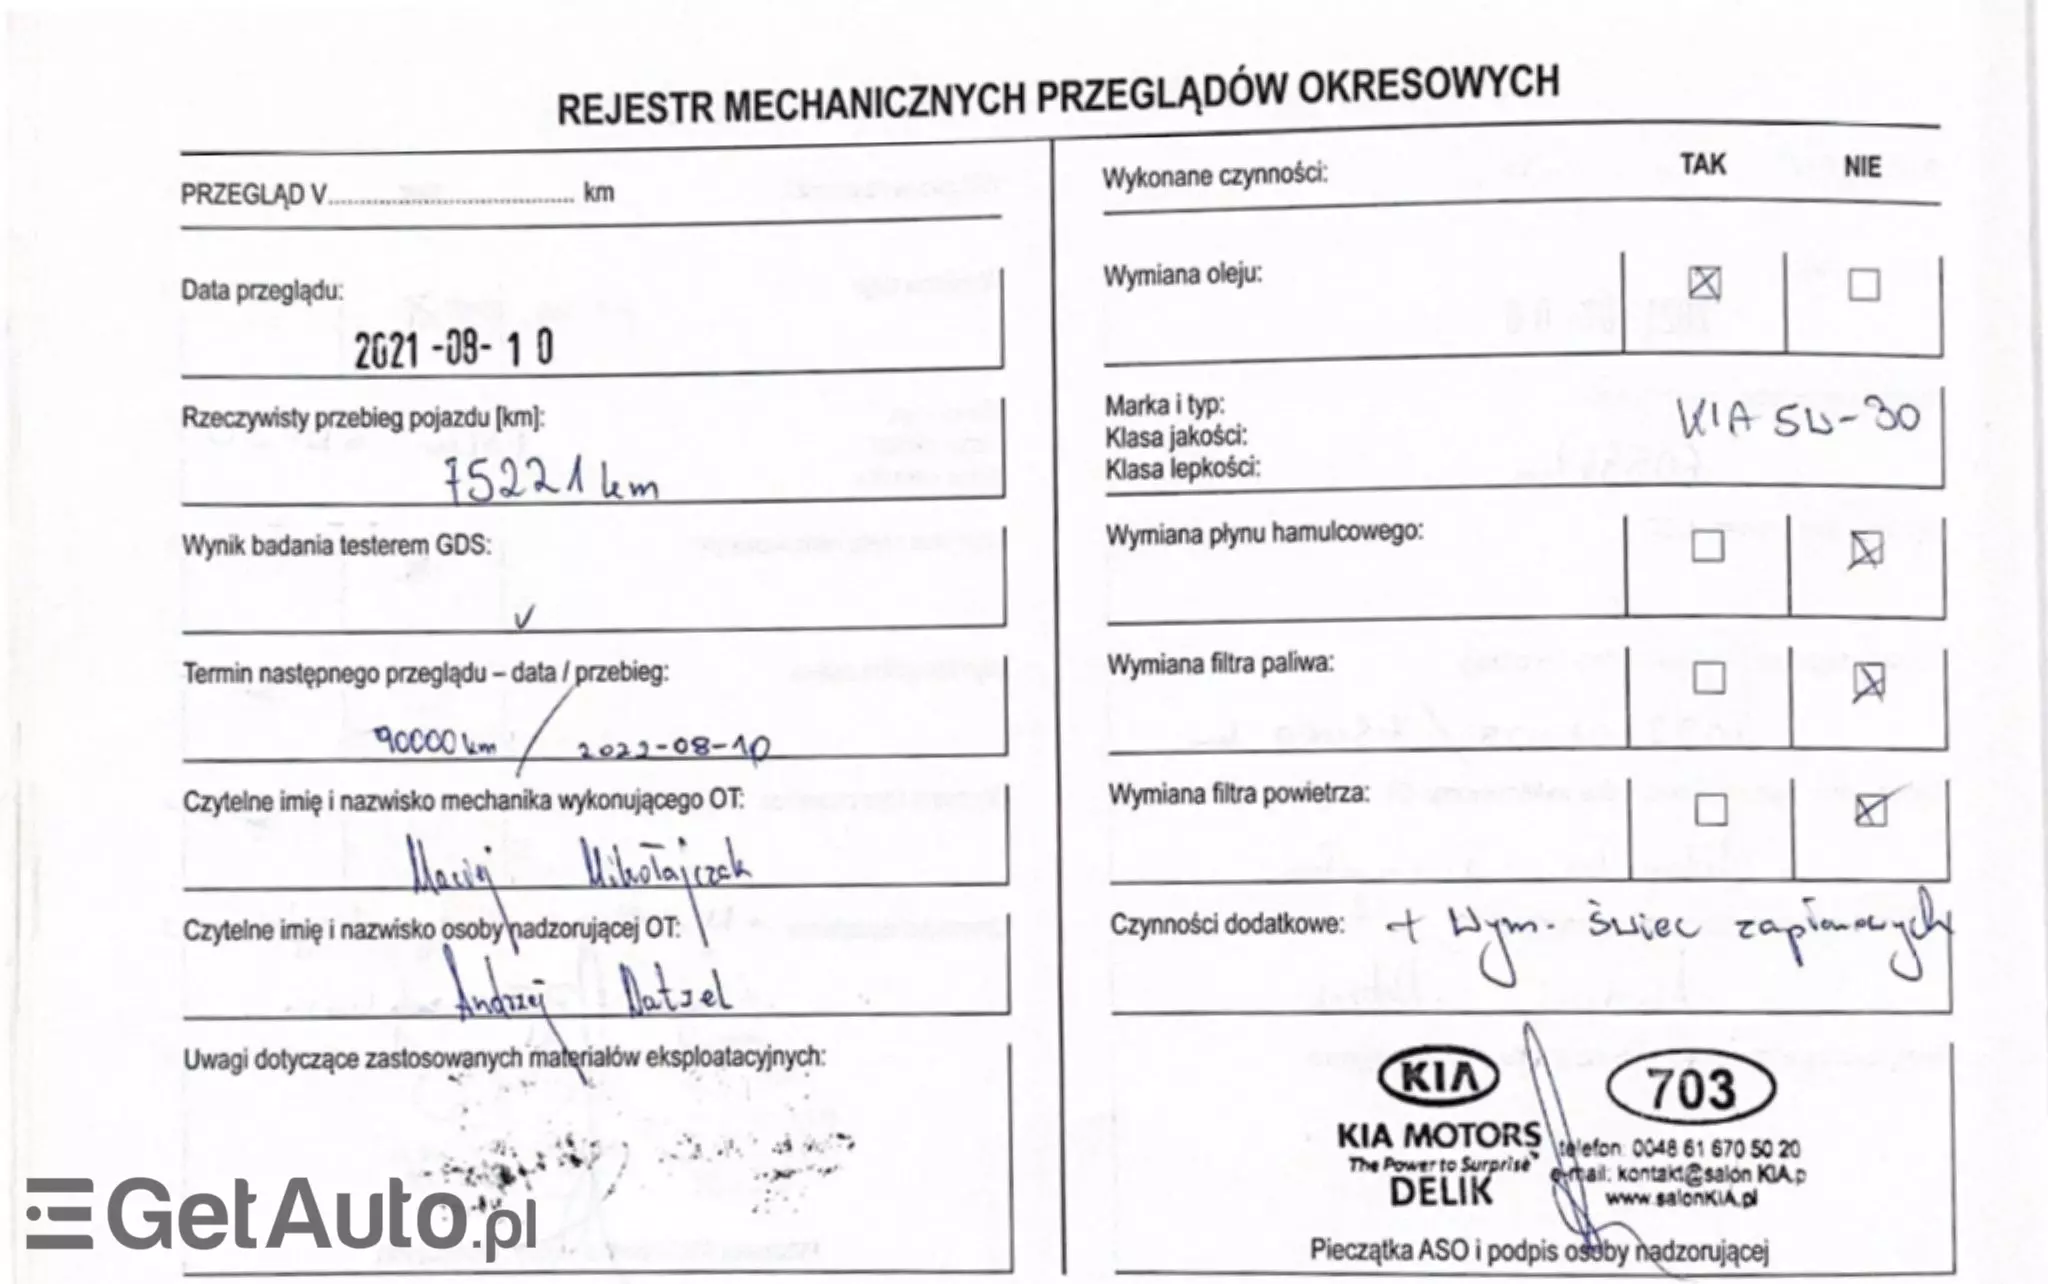 REJESTR MECHANICZNYCH PRZEGLĄDÓW OKRESOWYCH
PRZEGLĄD V.......................................... km
Data przeglądu:
2021-08-10
Rzeczywisty przebieg pojazdu [km]:
75221 km
Wynik badania testerem GDS:
✓
Termin następnego przeglądu – data / przebieg:
90000 km / 2022-08-10
Czytelne imię i nazwisko mechanika wykonującego OT:
Maciej Mikołajczak
Czytelne imię i nazwisko osoby nadzorującej OT:
Andrzej
Uwagi dotyczące zastosowanych materiałów eksploatacyjnych:
Wykonane czynności: TAK NIE
Wymiana oleju: ☒ ☐
Marka i typ: KIA 5W-30
Klasa jakości:
Klasa lepkości:
Wymiana płynu hamulcowego: ☐ ☒
Wymiana filtra paliwa: ☐ ☒
Wymiana filtra powietrza: ☐ ☒
Czynności dodatkowe: + wym. świec zapłonowych
KIA 703
KIA MOTORS
The Power to Surprise™
DELIK
telefon: 0048 61 670 50 20
e-mail: kontakt@salon KIA.p
www.salonKIA.pl
Pieczątka ASO i podpis osoby nadzorującej
GetAuto.pl